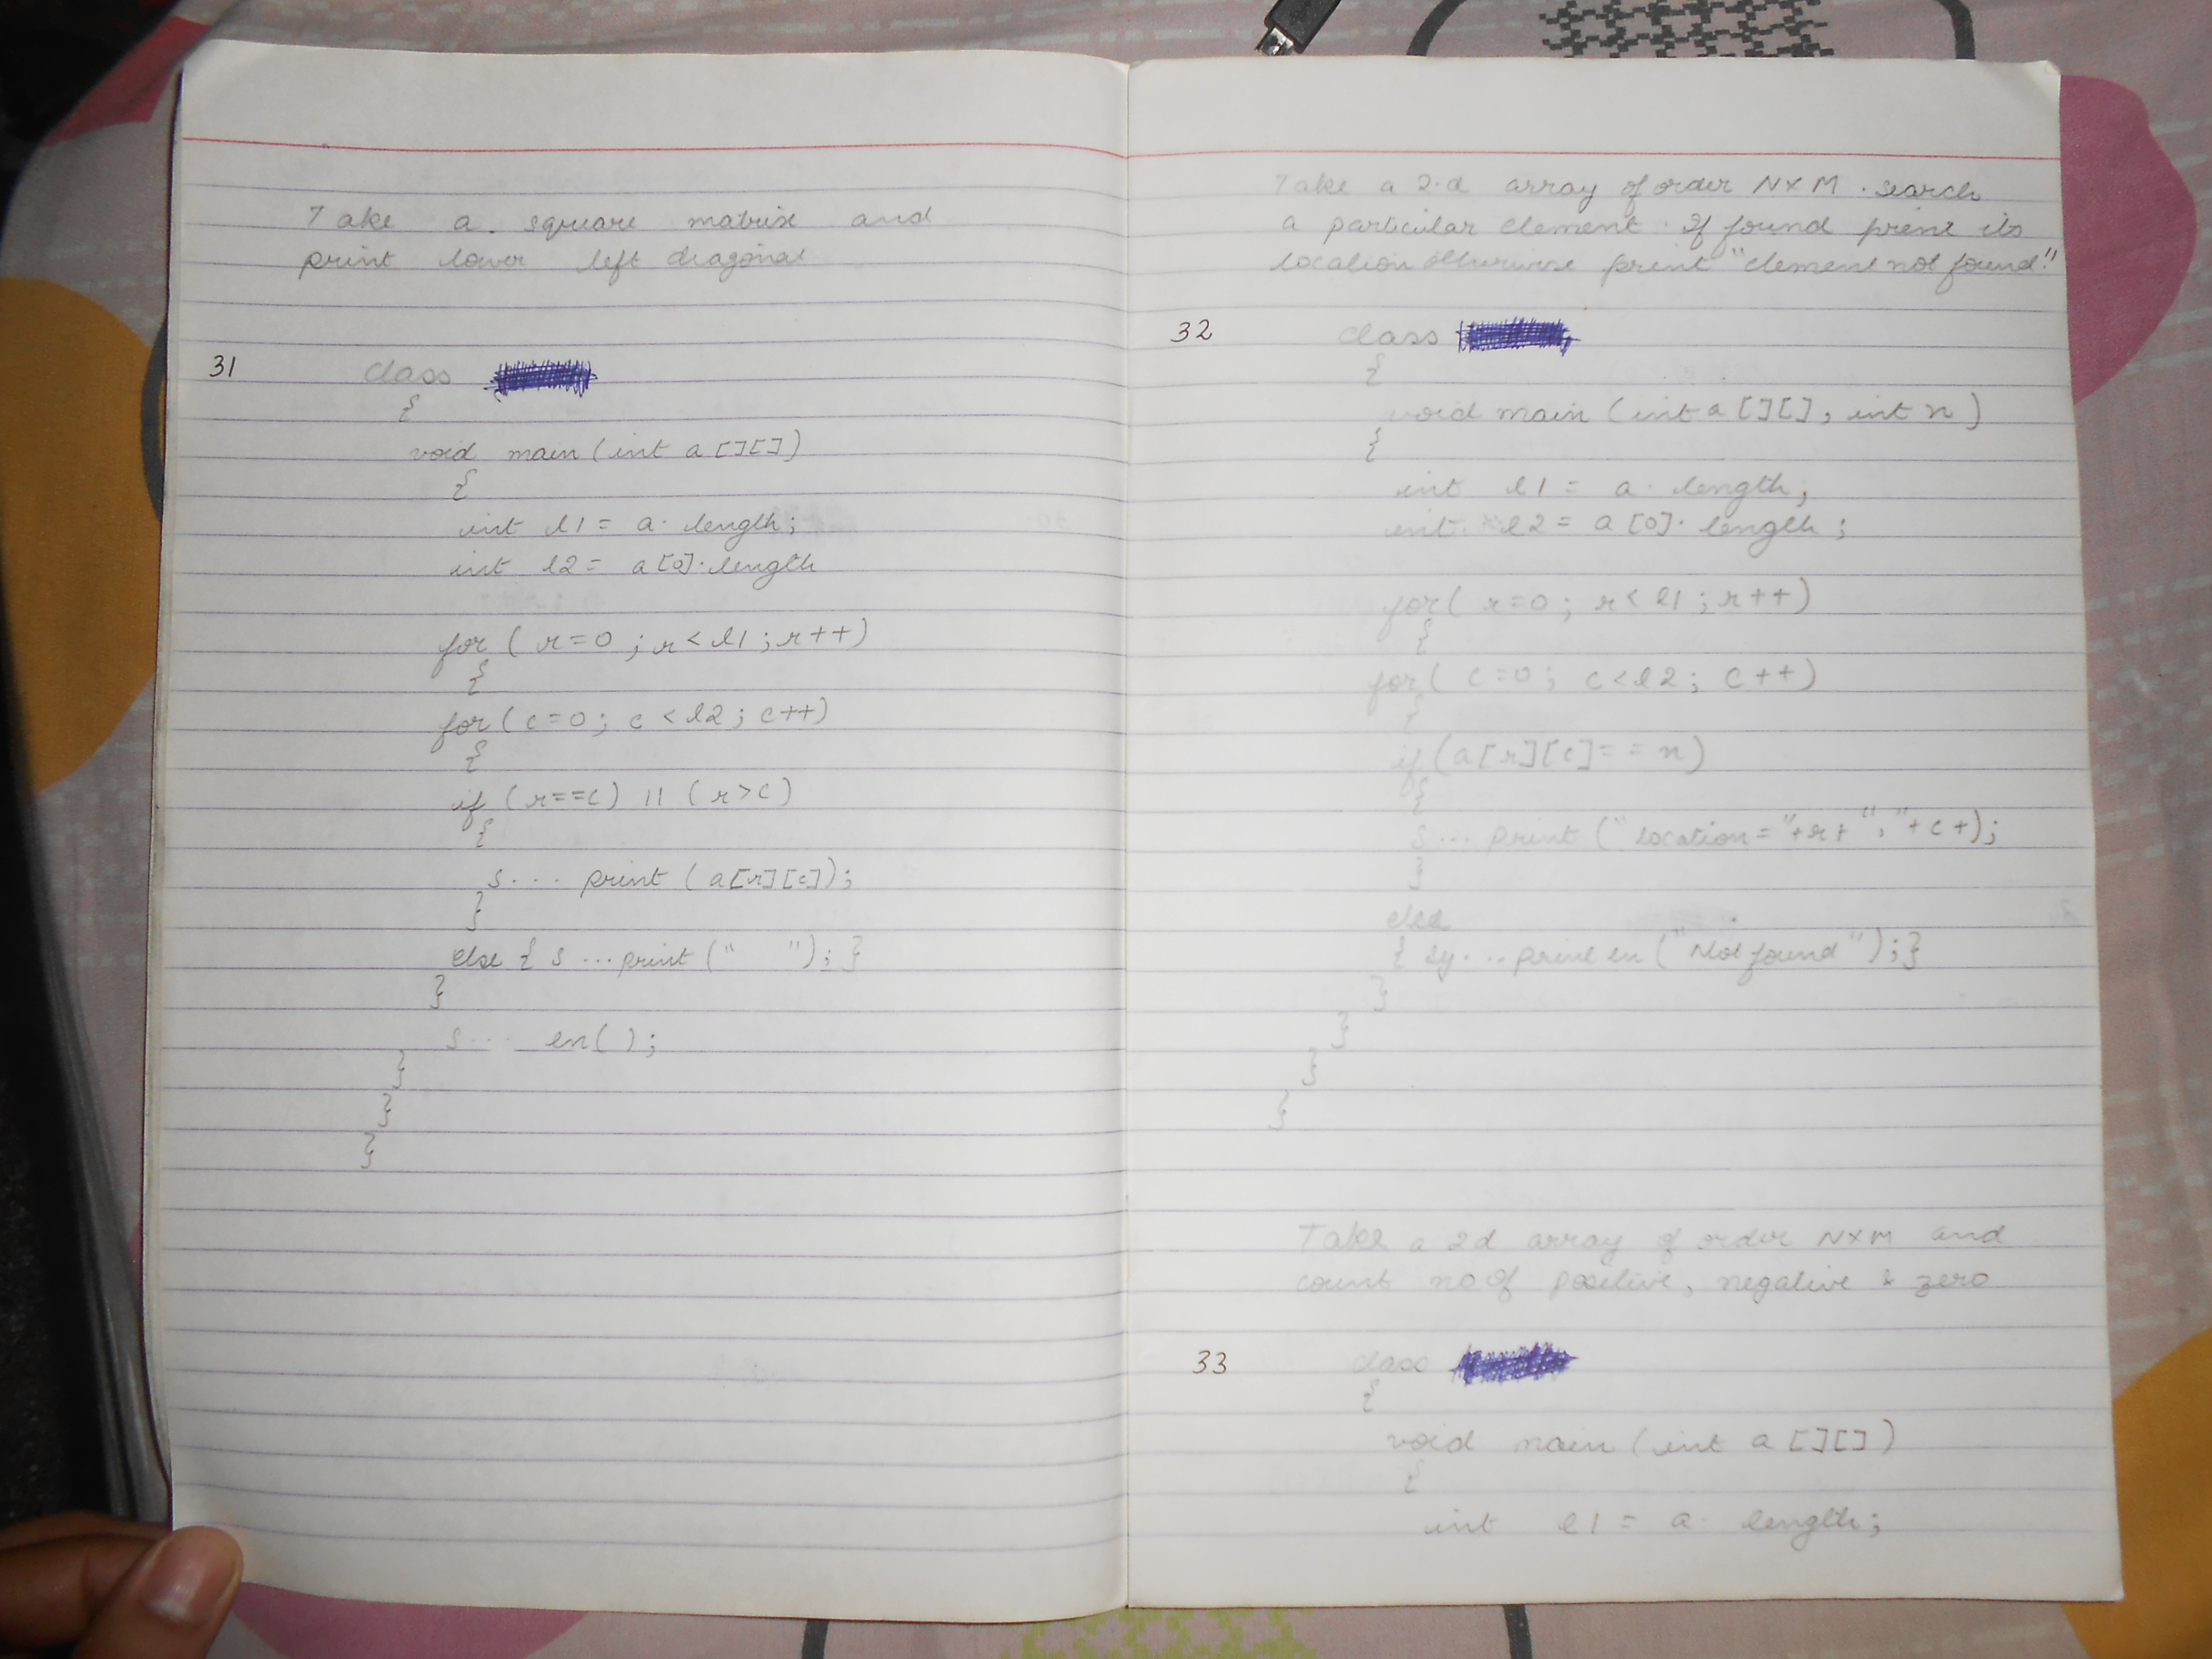 Take a square matrix and
print lower left diagonal
31 class
{
void main (int a [][])
{
int l1 = a. length;
int l2 = a[0]. length
for ( r=0 ; r<l1 ; r++)
{
for ( c=0 ; c<l2 ; c++)
{
if (r==c) || ( r>c)
{
s... print (a[r][c]);
}
else { s ...print (" "); }
}
s... ln( );
}
}
}
Take a 2.d array of order NXM . search
a particular element. If found print its
location otherwise print "element not found"
32 class
{
void main (int a [][], int n )
{
int l1 = a. length,
int l2 = a [0]. length ;
for( r=0 ; r< l1 ; r++)
{
for( c=0 ; c<l2 ; c++)
{
if (a[r][c]= = n)
{
s... print ("location="+r+ ","+c+);
}
else
{ sy... print ln ("Not found");}
}
}
}
}
Take a 2d array of order NXM and
count no of positive, negative & zero
33 class
{
void main (int a [][])
{
int l1 = a. length;